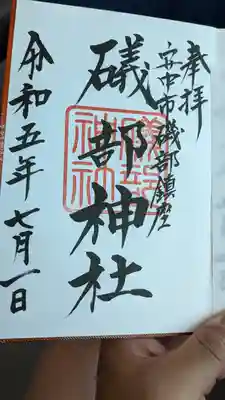 奉拝
安中市磯部鎮座
礒部神社
令和五年七月一日